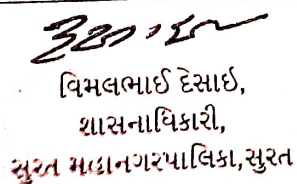 વિમલભાઈ દેસાઈ,
શાસનાધિકારી,
સુરત મહાનગરપાલિકા,સુરત